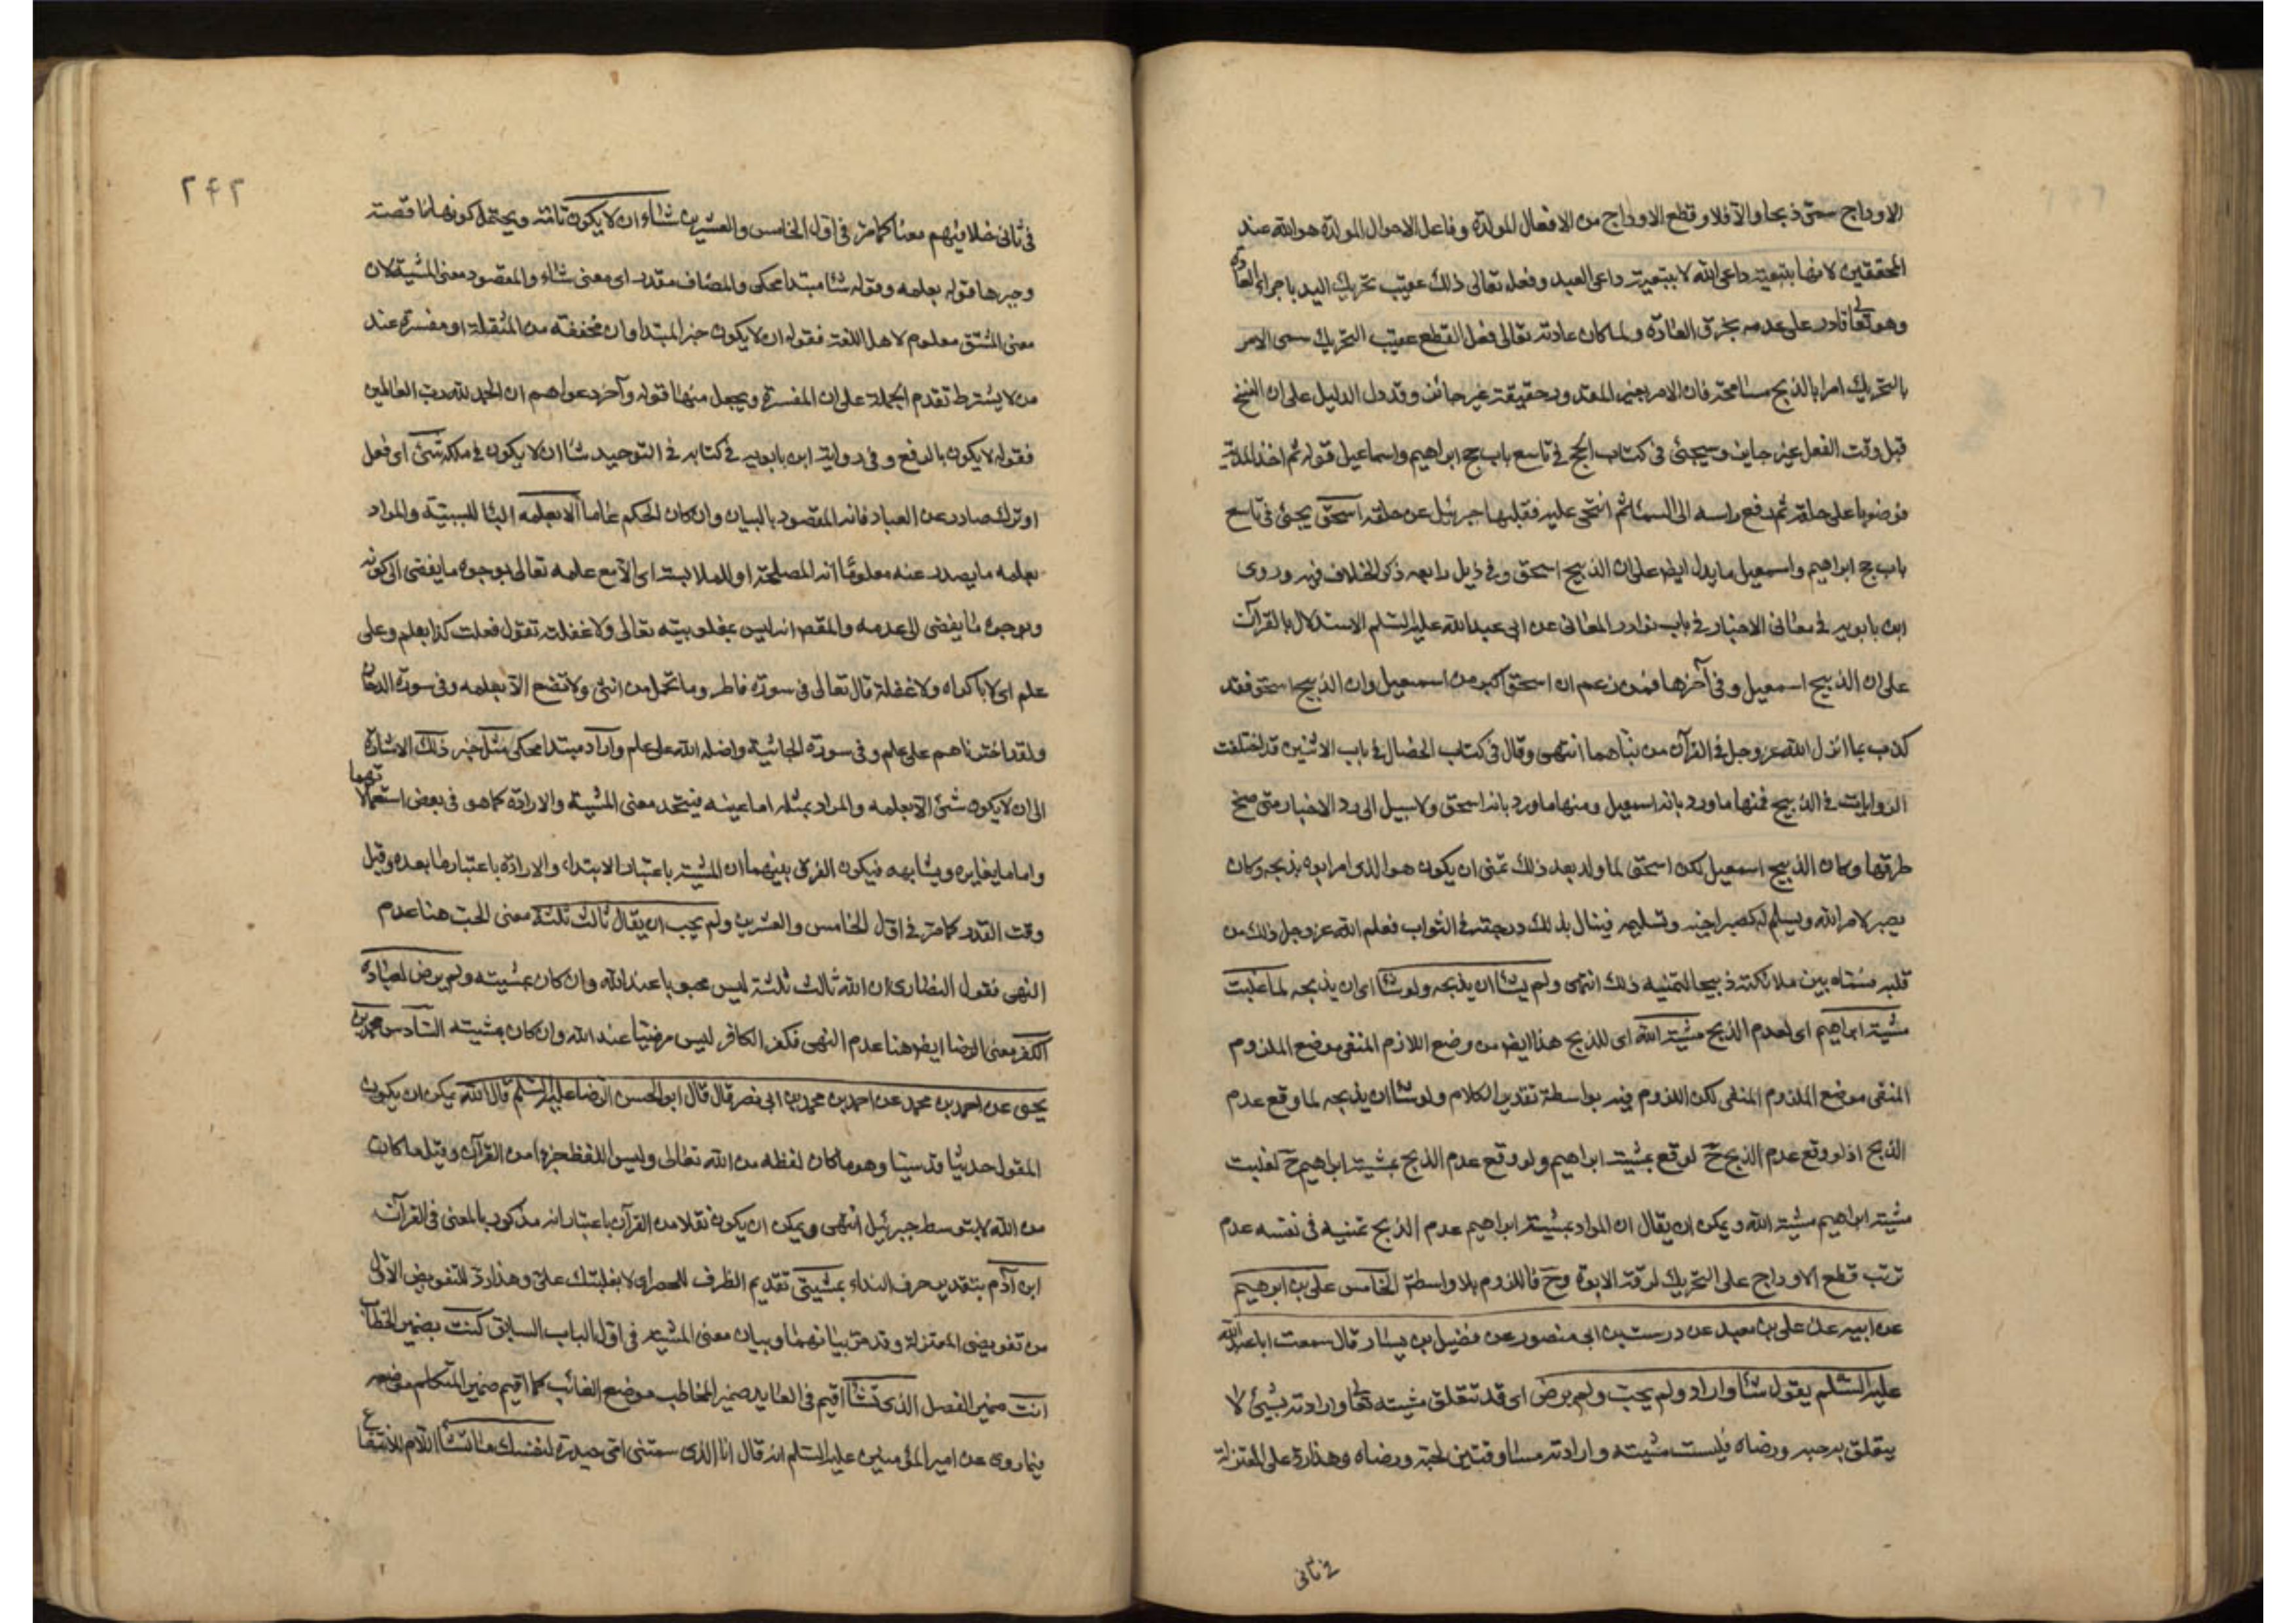 الاوداج سمّى ذبحا والّا فلا وقطع الاوداج من الافعال المولدة وفاعل الاحوال المولدة هو الله عند
المحققين لانها بتبعيته داعى الله لا بتبعية داعى العبد وفعله تعالى ذلك عقيب تحريك اليد باجراء العادة
وهو تعالى قادر على عدمه بخرق العادة ولما كان عادته تعالى فعل القطع عقيب التحريك سمى الامر
بالتحريك امرا بالذبح مسامحة فان الامر بغير المقدور حقيقة غير جائز وقد دل الدليل على ان النسخ
قبل وقت الفعل غير جايز وسيجئ فى كتاب الحج فى تاسع باب حج ابراهيم واسماعيل قوله ثم اخذ المدية
فوضعها على حلقه ثم رفع راسه الى السماء ثم انتحى عليه فقلبها جبرئيل عن حلقه اسحق يجئ فى تاسع
باب حج ابراهيم واسمعيل ما يدل ايض على ان الذبيح اسحق وفى ذيل رابعه ذكر الخلاف فيه وروى
ابن بابويه فى معانى الاخبار فى باب نوادر المعانى عن ابى عبد الله عليه السلم الاستدلال بالقرآن
على ان الذبيح اسمعيل وفى آخرها فمن زعم ان اسحق اكبر من اسمعيل وان الذبيح اسحق فقد
كذب بما انزل الله عز وجل فى القرآن من نبأهما انتهى وقال فى كتاب الخصال فى باب الاثنين قد اختلفت
الروايات فى الذبيح فمنها ما ورد بانه اسمعيل ومنها ما ورد بانه اسحق ولا سبيل الى رد الاخبار متى صح
طرقها وكان الذبيح اسمعيل لكن اسحق لما ولد بعد ذلك تمنى ان يكون هو الذى امر ابوه بذبحه وكان
يصبر لامر الله ويسلم له كصبر اخيه وتسليمه فينال بذلك درجته فى الثواب فعلم الله عز وجل ذلك من
قلبه فسماه بين ملائكته ذبيحا لتمنيه ذلك انتهى ولم يشأ ان يذبحه ولو شا اى ان يذبحه لما غلبت
مشية ابراهيم اى لعدم الذبح مشية الله اى للذبح هذا ايض من وضع اللازم المنفى موضع الملزوم
المنفى موضع الملزوم المنفى لكن اللزوم فيه بواسطة تقدير الكلام ولو شا ان يذبحه لما وقع عدم
الذبح اذ لو وقع عدم الذبح ح لوقع بمشية ابراهيم ولو وقع عدم الذبح بمشية ابراهيم ح لغلبت
مشية ابراهيم مشية الله ويمكن ان يقال ان المراد بمشية ابراهيم عدم الذبح تمنيه فى نفسه عدم
ترتب قطع الاوداج على التحريك لرقة الابوة وح فاللزوم بلا واسطة الخامس على بن ابرهيم
عن ابيه عن على بن معبد عن درست بن ابى منصور عن فضيل بن يسار قال سمعت ابا عبد الله
عليه السلم يقول شا واراد ولم يحب ولم يرض اى قد تتعلق مشيته تعالى وارادته بشئ لا
يتعلق به حبه ورضاه فليست مشيته وارادته مساوقتين لحبه ورضاه وهذا رد على المعتزلة
فى ثانى
٢٤٢
فى ثانى خلافيهم معنا كما مر فى اول الخامس والعشرين شاء ان لا يكون تامة ويحتمل كونها ناقصة
وخبرها قوله بعلمه وقوله شا مبتدا محكى والمضاف مقدر اى معنى شاء والمقصود معنى المشية لان
معنى المشتق معلوم لاهل اللغة فقوله ان لا يكون خبر المبتدا وان مخففة من المثقلة او مفسرة عند
من لا يشترط تقدم الجملة على ان المفسرة ويجعل منها قوله وآخر دعواهم ان الحمد لله رب العالمين
فقوله لا يكون بالرفع وفى رواية ابن بابويه فى كتابه فى التوحيد شا ان لا يكون فى ملكه شئ اى فعل
او ترك صادر عن العباد فانه المقصود بالبيان وان كان الحكم عاما الا بعلمه البا للسببية والمراد
بعلمه ما يصدر عنه معلوما انه المصلحة او للملابسة اى الا مع علمه تعالى بوجوه ما يفضى الى كونه
وبوجوه ما يفضى الى عدمه والمقص انه ليس بمغلوبيته تعالى ولا غفلة تقول فعلت كذا بعلم وعلى
علم اى لا باكراه ولا غفلة قال تعالى فى سورة فاطر وما تحمل من انثى ولا تضع الا بعلمه وفى سورة الدخان
ولقد اخترناهم على علم وفى سورة الجاثية واضله الله على علم واراد مبتدا محكى مثل خبر ذلك الاشارة
الى ان لا يكون شئ الا بعلمه والمراد بمثله اما عينه فيتحد معنى المشية والارادة كما هو فى بعض استعمالاتهما
واما ما يغايره ويشابهه فيكون الفرق بينهما ان المشية باعتبار الابتداء والارادة باعتبار ما بعده وقبل
وقت القدر كما مر فى اول الخامس والعشرين ولم يحب ان يقال ثالث ثلثة معنى الحب هنا عدم
النهى فقول النصارى ان الله ثالث ثلثة ليس محبوبا عند الله وان كان بمشيته ولم يرض لعباده
الكفر معنى الرضا ايض هنا عدم النهى فكفر الكافر ليس مرضيا عند الله وان كان بمشيته السادس محمد بن
يحيى عن احمد بن محمد عن احمد بن محمد بن ابى نصر قال قال ابو الحسن الرضا عليه السلم قال الله يمكن ان يكون
المقول حديثا قدسيا وهو ما كان لفظه من الله تعالى وليس اللفظ جزءا من القرآن وقيل ما كان
من الله لا بتوسط جبرئيل انتهى ويمكن ان يكون نقلا من القرآن باعتبار انه مذكور بالمعنى فى القرآن
ابن آدم بتقدير حرف النداء بمشيتى تقديم الظرف للحصر اى لا بغلبتك على وهذا رد للتفويض الاول
من تفويضى المعتزلة وقد مر بيانهما وبيان معنى المشية فى اول الباب السابق كنت بضمير الخطاب
انت ضمير الفصل الذى تشا اقيم فى العايد ضمير المخاطب موضع الغائب كما اقيم ضمير المتكلم موضعه
فيما روى عن امير المؤمنين عليه السلم انه قال انا الذى سمتنى امى حيدرة لنفسك ما تشا اللام للانتفاع